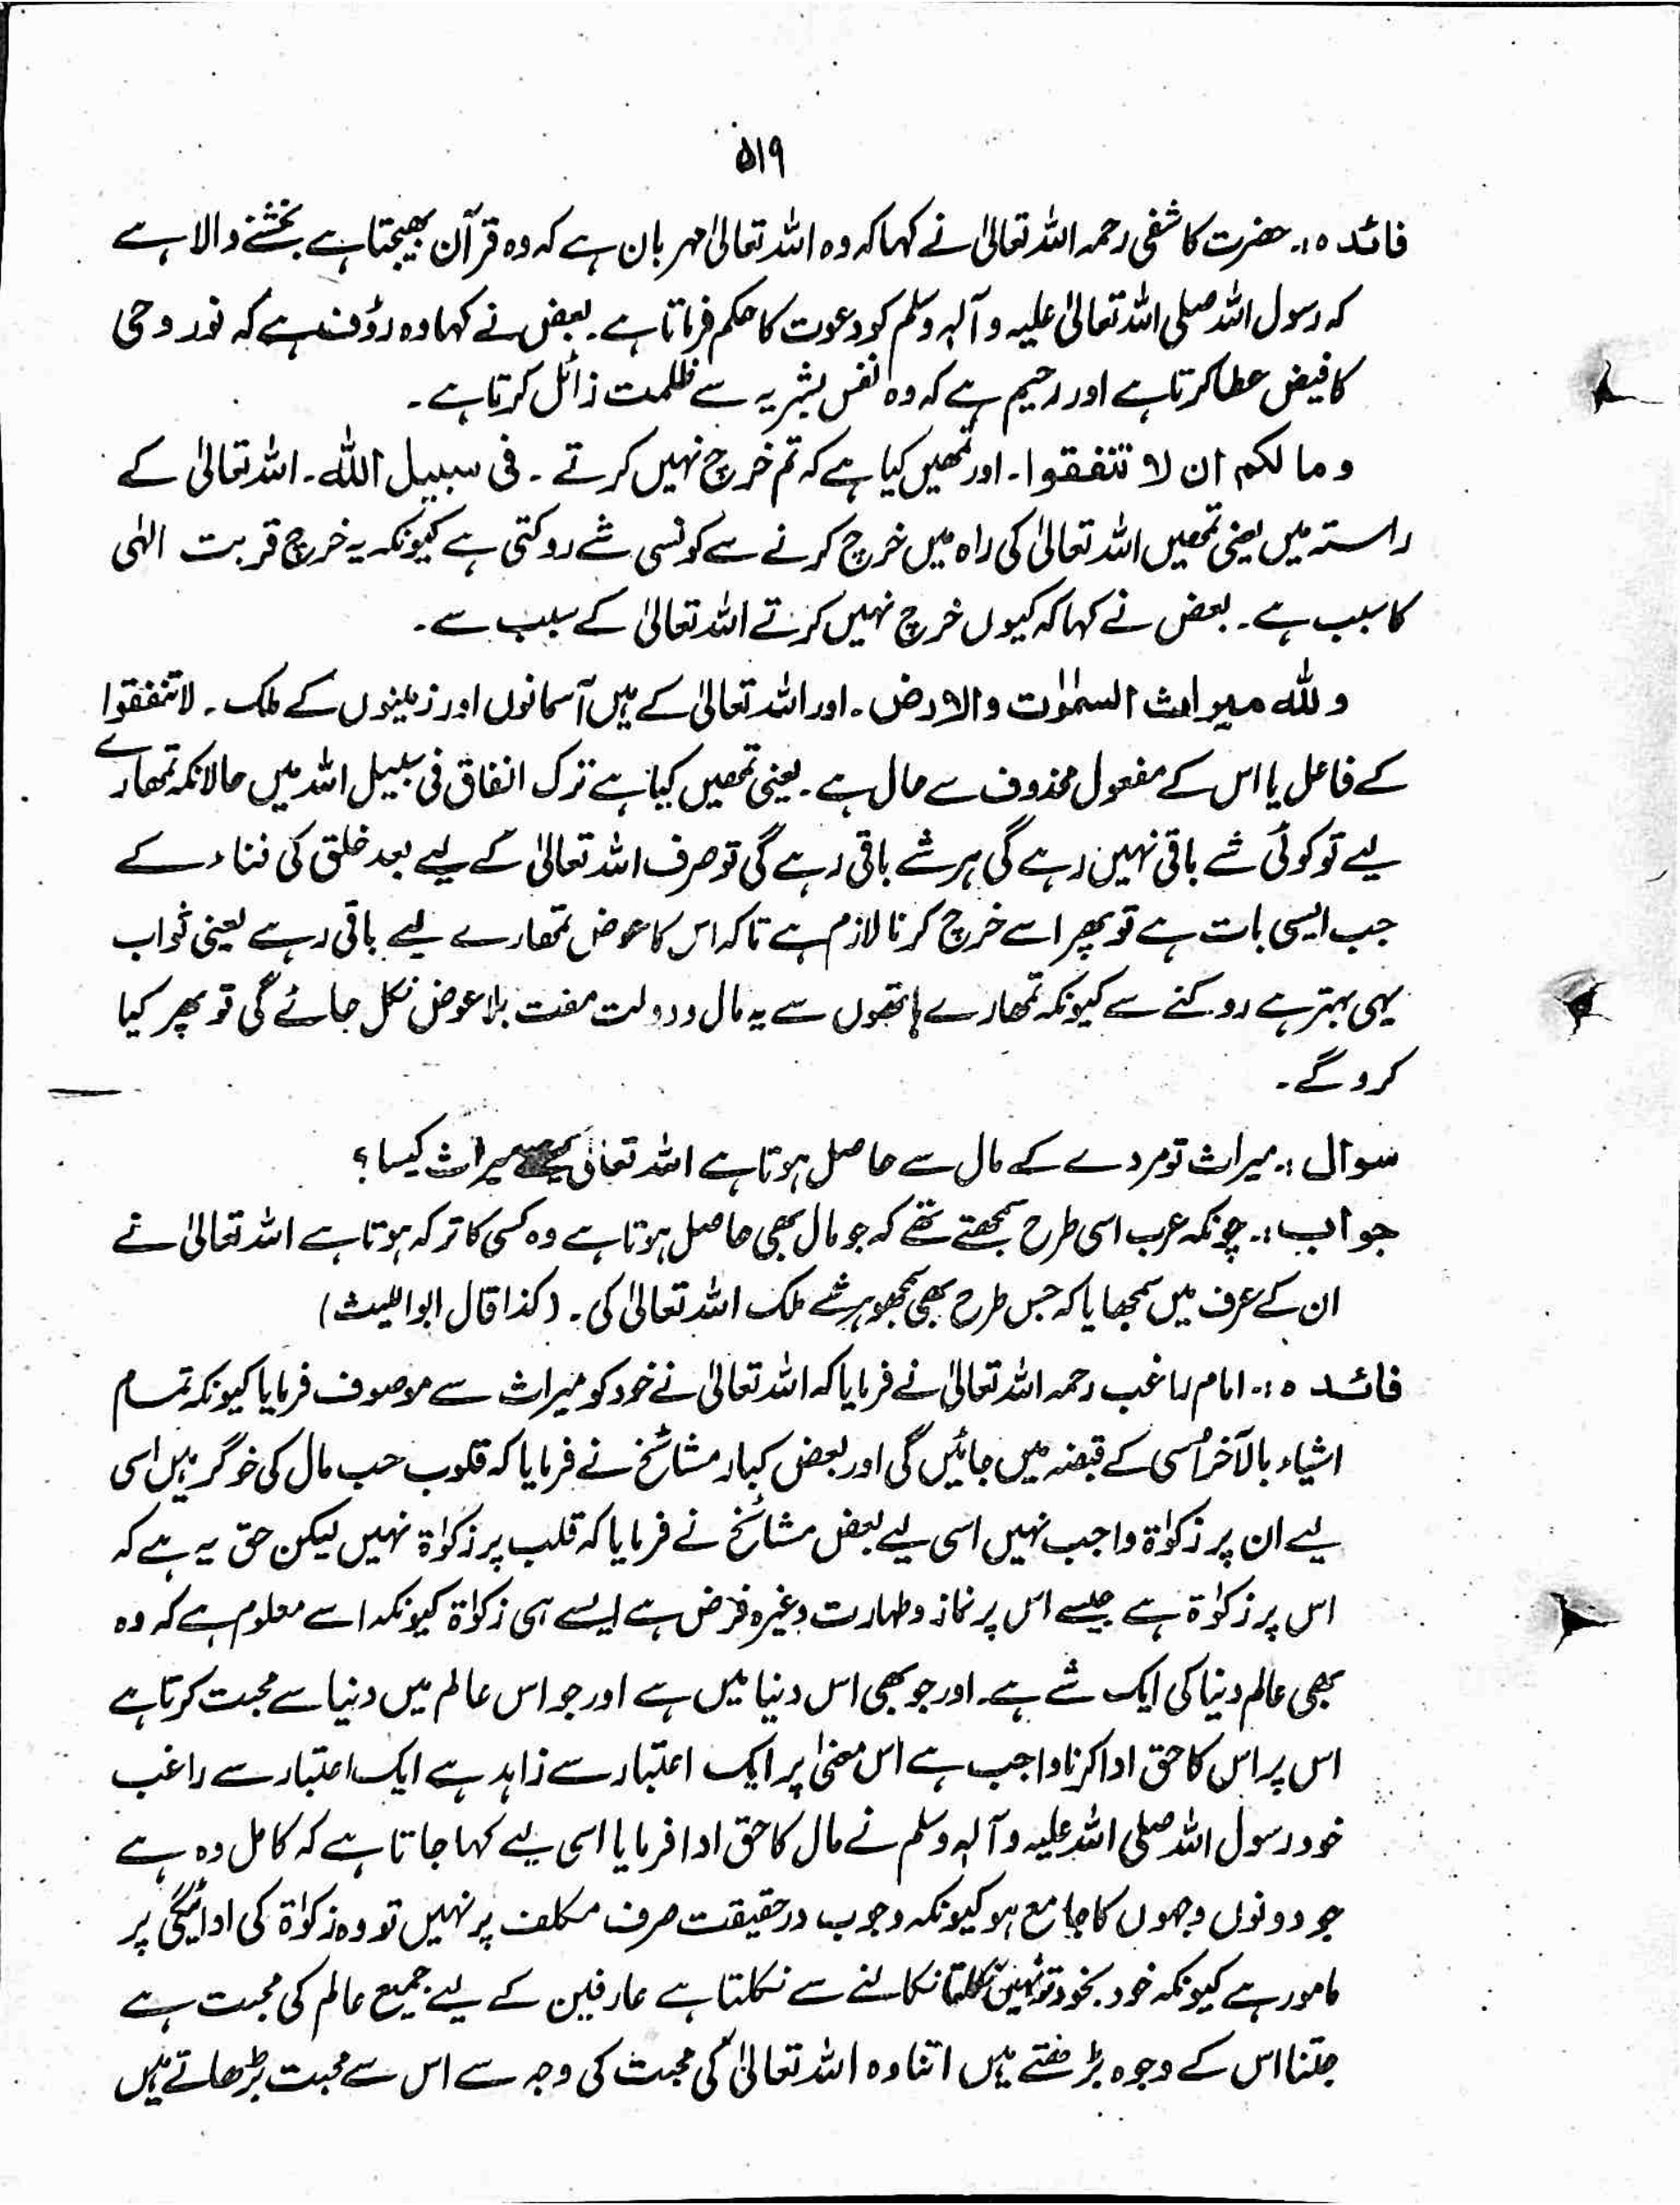 ۵۱۹
فائدہ:۔ حضرت کاشفی رحمہ اللہ تعالیٰ نے کہا کہ وہ اللہ تعالیٰ مہربان ہے کہ وہ قرآن بھیجتا ہے بخشنے والا ہے
کہ رسول اللہ صلی اللہ تعالیٰ علیہ و آلہٖ وسلم کو دعوت کا حکم فرماتا ہے۔ بعض نے کہا وہ رؤف ہے کہ نور وحی
کا فیض عطا کرتا ہے اور رحیم ہے کہ وہ نفس بشریہ سے ظلمت زائل کرتا ہے۔
وما لکم ان لا تنفقوا۔ اور تمھیں کیا ہے کہ تم خرچ نہیں کرتے۔ فی سبیل اللہ۔ اللہ تعالیٰ کے
راستہ میں یعنی تمھیں اللہ تعالیٰ کی راہ میں خرچ کرنے سے کونسی شے روکتی ہے کیونکہ یہ خرچ قربت الٰہی
کا سبب ہے۔ بعض نے کہا کہ کیوں خرچ نہیں کرتے اللہ تعالیٰ کے سبب سے۔
وللہ میراث السمٰوٰت والارض۔ اور اللہ تعالیٰ کے ہیں آسمانوں اور زمینوں کے ملک۔ لا تنفقوا
کے فاعل یا اس کے مفعول محذوف سے حال ہے۔ یعنی تمھیں کیا ہے ترک انفاق فی سبیل اللہ میں حالانکہ تمھارے
لیے تو کوئی شے باقی نہیں رہے گی ہر شے باقی رہے گی تو صرف اللہ تعالیٰ کے لیے بعد خلق کی فناء کے
جب ایسی بات ہے تو پھر اسے خرچ کرنا لازم ہے تاکہ اس کا عوض تمھارے لیے باقی رہے یعنی ثواب
یہی بہتر ہے روکنے سے کیونکہ تمھارے ہاتھوں سے یہ مال و دولت مفت بلا عوض نکل جائے گی تو پھر کیا
کرو گے۔
سوال:۔ میراث تو مردے کے مال سے حاصل ہوتا ہے اللہ تعالیٰ میراث کیسا؟
جواب:۔ چونکہ عرب اسی طرح سمجھتے تھے کہ جو مال بھی حاصل ہوتا ہے وہ کسی کا ترکہ ہوتا ہے اللہ تعالیٰ نے
ان کے عرف میں سمجھایا کہ جس طرح بھی سمجھو ہر شے ملک اللہ تعالیٰ کی۔ (کذا قال ابو اللیث)
فائدہ:۔ امام راغب رحمہ اللہ تعالیٰ نے فرمایا کہ اللہ تعالیٰ نے خود کو میراث سے موصوف فرمایا کیونکہ تمام
اشیاء بالآخر اُسی کے قبضہ میں جائیں گی اور بعض کبار مشائخ نے فرمایا کہ قلوب حب مال کی خوگر ہیں اسی
لیے ان پر زکوٰۃ واجب نہیں اسی لیے بعض مشائخ نے فرمایا کہ قلب پر زکوٰۃ نہیں لیکن حق یہ ہے کہ
اس پر زکوٰۃ ہے جیسے اس پر نماز و طہارت وغیرہ فرض ہے ایسے ہی زکوٰۃ کیونکہ اسے معلوم ہے کہ وہ
بھی عالم دنیا کی ایک شے ہے۔ اور جو بھی اس دنیا میں ہے اور جو اس عالم میں دنیا سے محبت کرتا ہے
اس پر اس کا حق ادا کرنا واجب ہے اس معنیٰ پر ایک اعتبار سے زاہد ہے ایک اعتبار سے راغب
خود رسول اللہ صلی اللہ علیہ و آلہٖ وسلم نے مال کا حق ادا فرمایا اسی لیے کہا جاتا ہے کہ کامل وہ ہے
جو دونوں وجہوں کا جامع ہو کیونکہ وجوب درحقیقت صرف مکلف پر نہیں تو وہ زکوٰۃ کی ادائیگی پر
مامور ہے کیونکہ خود بخود تو نہیں نکلتا نکالنے سے نکلتا ہے عارفین کے لیے جمیع عالم کی محبت ہے
جتنا اس کے وجوہ بڑھتے ہیں اتنا وہ اللہ تعالیٰ کی محبت کی وجہ سے اس سے محبت بڑھاتے ہیں